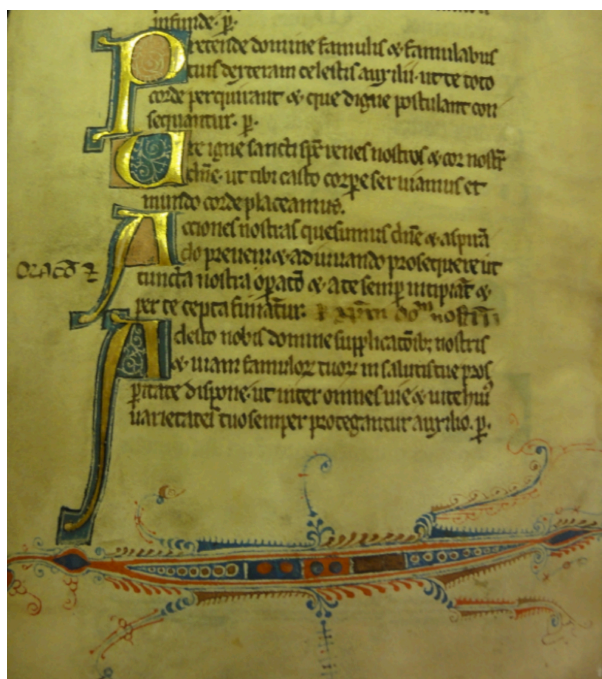 infunde. p̃.
Pretende domine famulis & famulabus
tuis dexteram celestis auxilii. ut te toto
corde perquirant & que digne postulant con
sequantur. p̃.
Ure igne sancti sp̃c renes nostros & cor nostr̃
dñe. ut tibi casto corpore seruiamus et
mundo corde placeamus.
Acciones nostras quesumus dñe & aspirã
do preueni & adiuuando prosequere ut
cuncta nostra op̃atio & a te semp̃ incipiat &
per te cepta finiatur.
Adesto nobis domine supplicatõib; nostris
& uiam famuloꝝ tuoꝝ in salutis tue pros
p̃itate dispone. ut inter omnes uie & uite hui᾽
uarietates tuo semper protegantur auxilio. p̃.